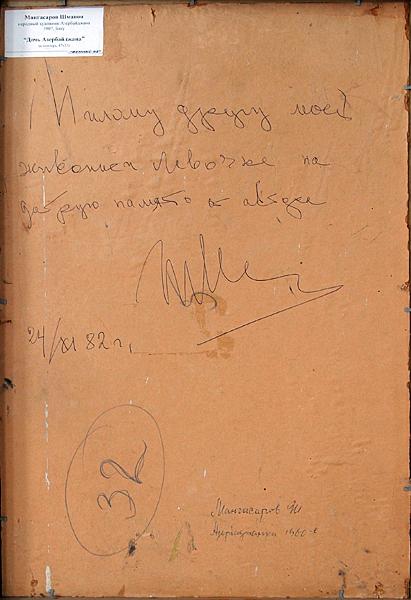 Мангасаров Шмавон
народный художник Азербайджана
"Дочь Азербайджана"
Милому другу моей
живописи Левочке на
добрую память о
24/XI 82 г.
32
Мангасаров Ш
1960-е